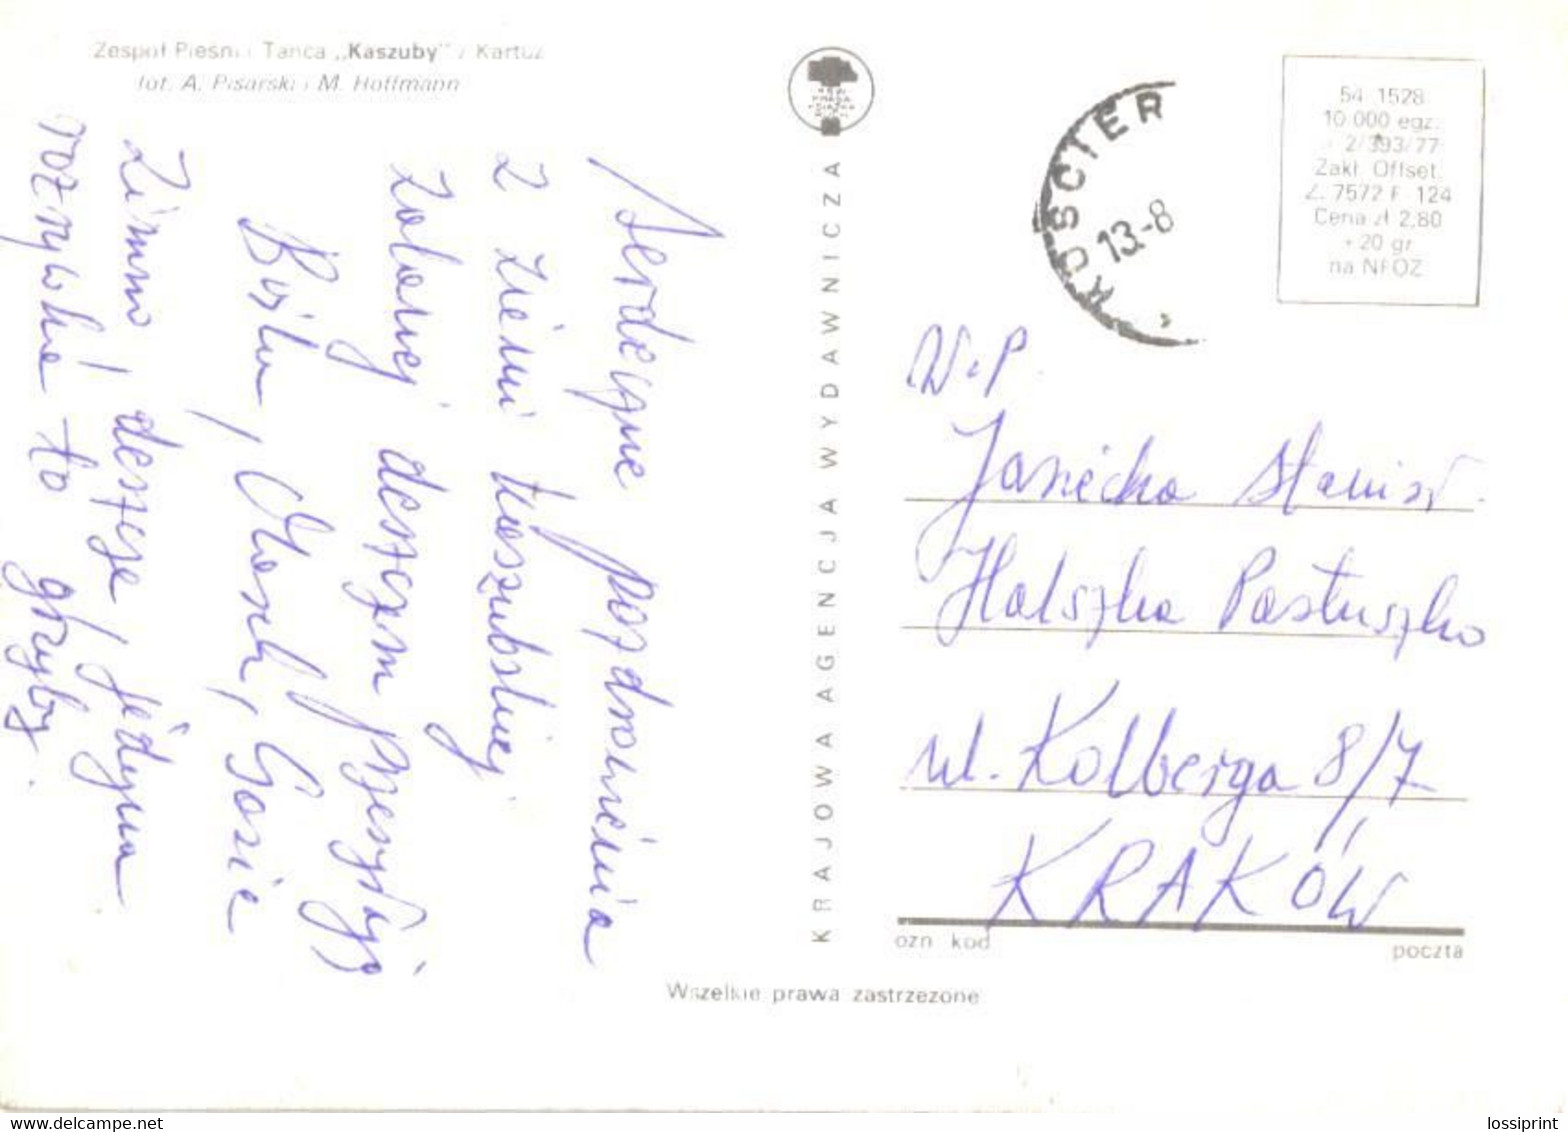 Zespół Pieśni i Tańca „Kaszuby" z Kartuz
fot. A. Pisarski i M. Hoffmann
Serdeczne pozdrowienia
z ziemi Kaszubskiej
zalanej deszczem przesyłają
Basia, Gosia
Zimno, deszcze, jedyna
rozrywka to grzyby.
KRAJOWA AGENCJA WYDAWNICZA
KOŚCIER
13.-8
54 1528
10 000 egz.
2/393/77
Zakł. Offset.
Z. 7572 F 124
Cena zł 2,80
+ 20 gr
na NFOZ
W.P.
Janicka
Halszka Pastuszko
ul. Kolberga 8/7
KRAKÓW
ozn kod
poczta
Wszelkie prawa zastrzeżone
lossiprint